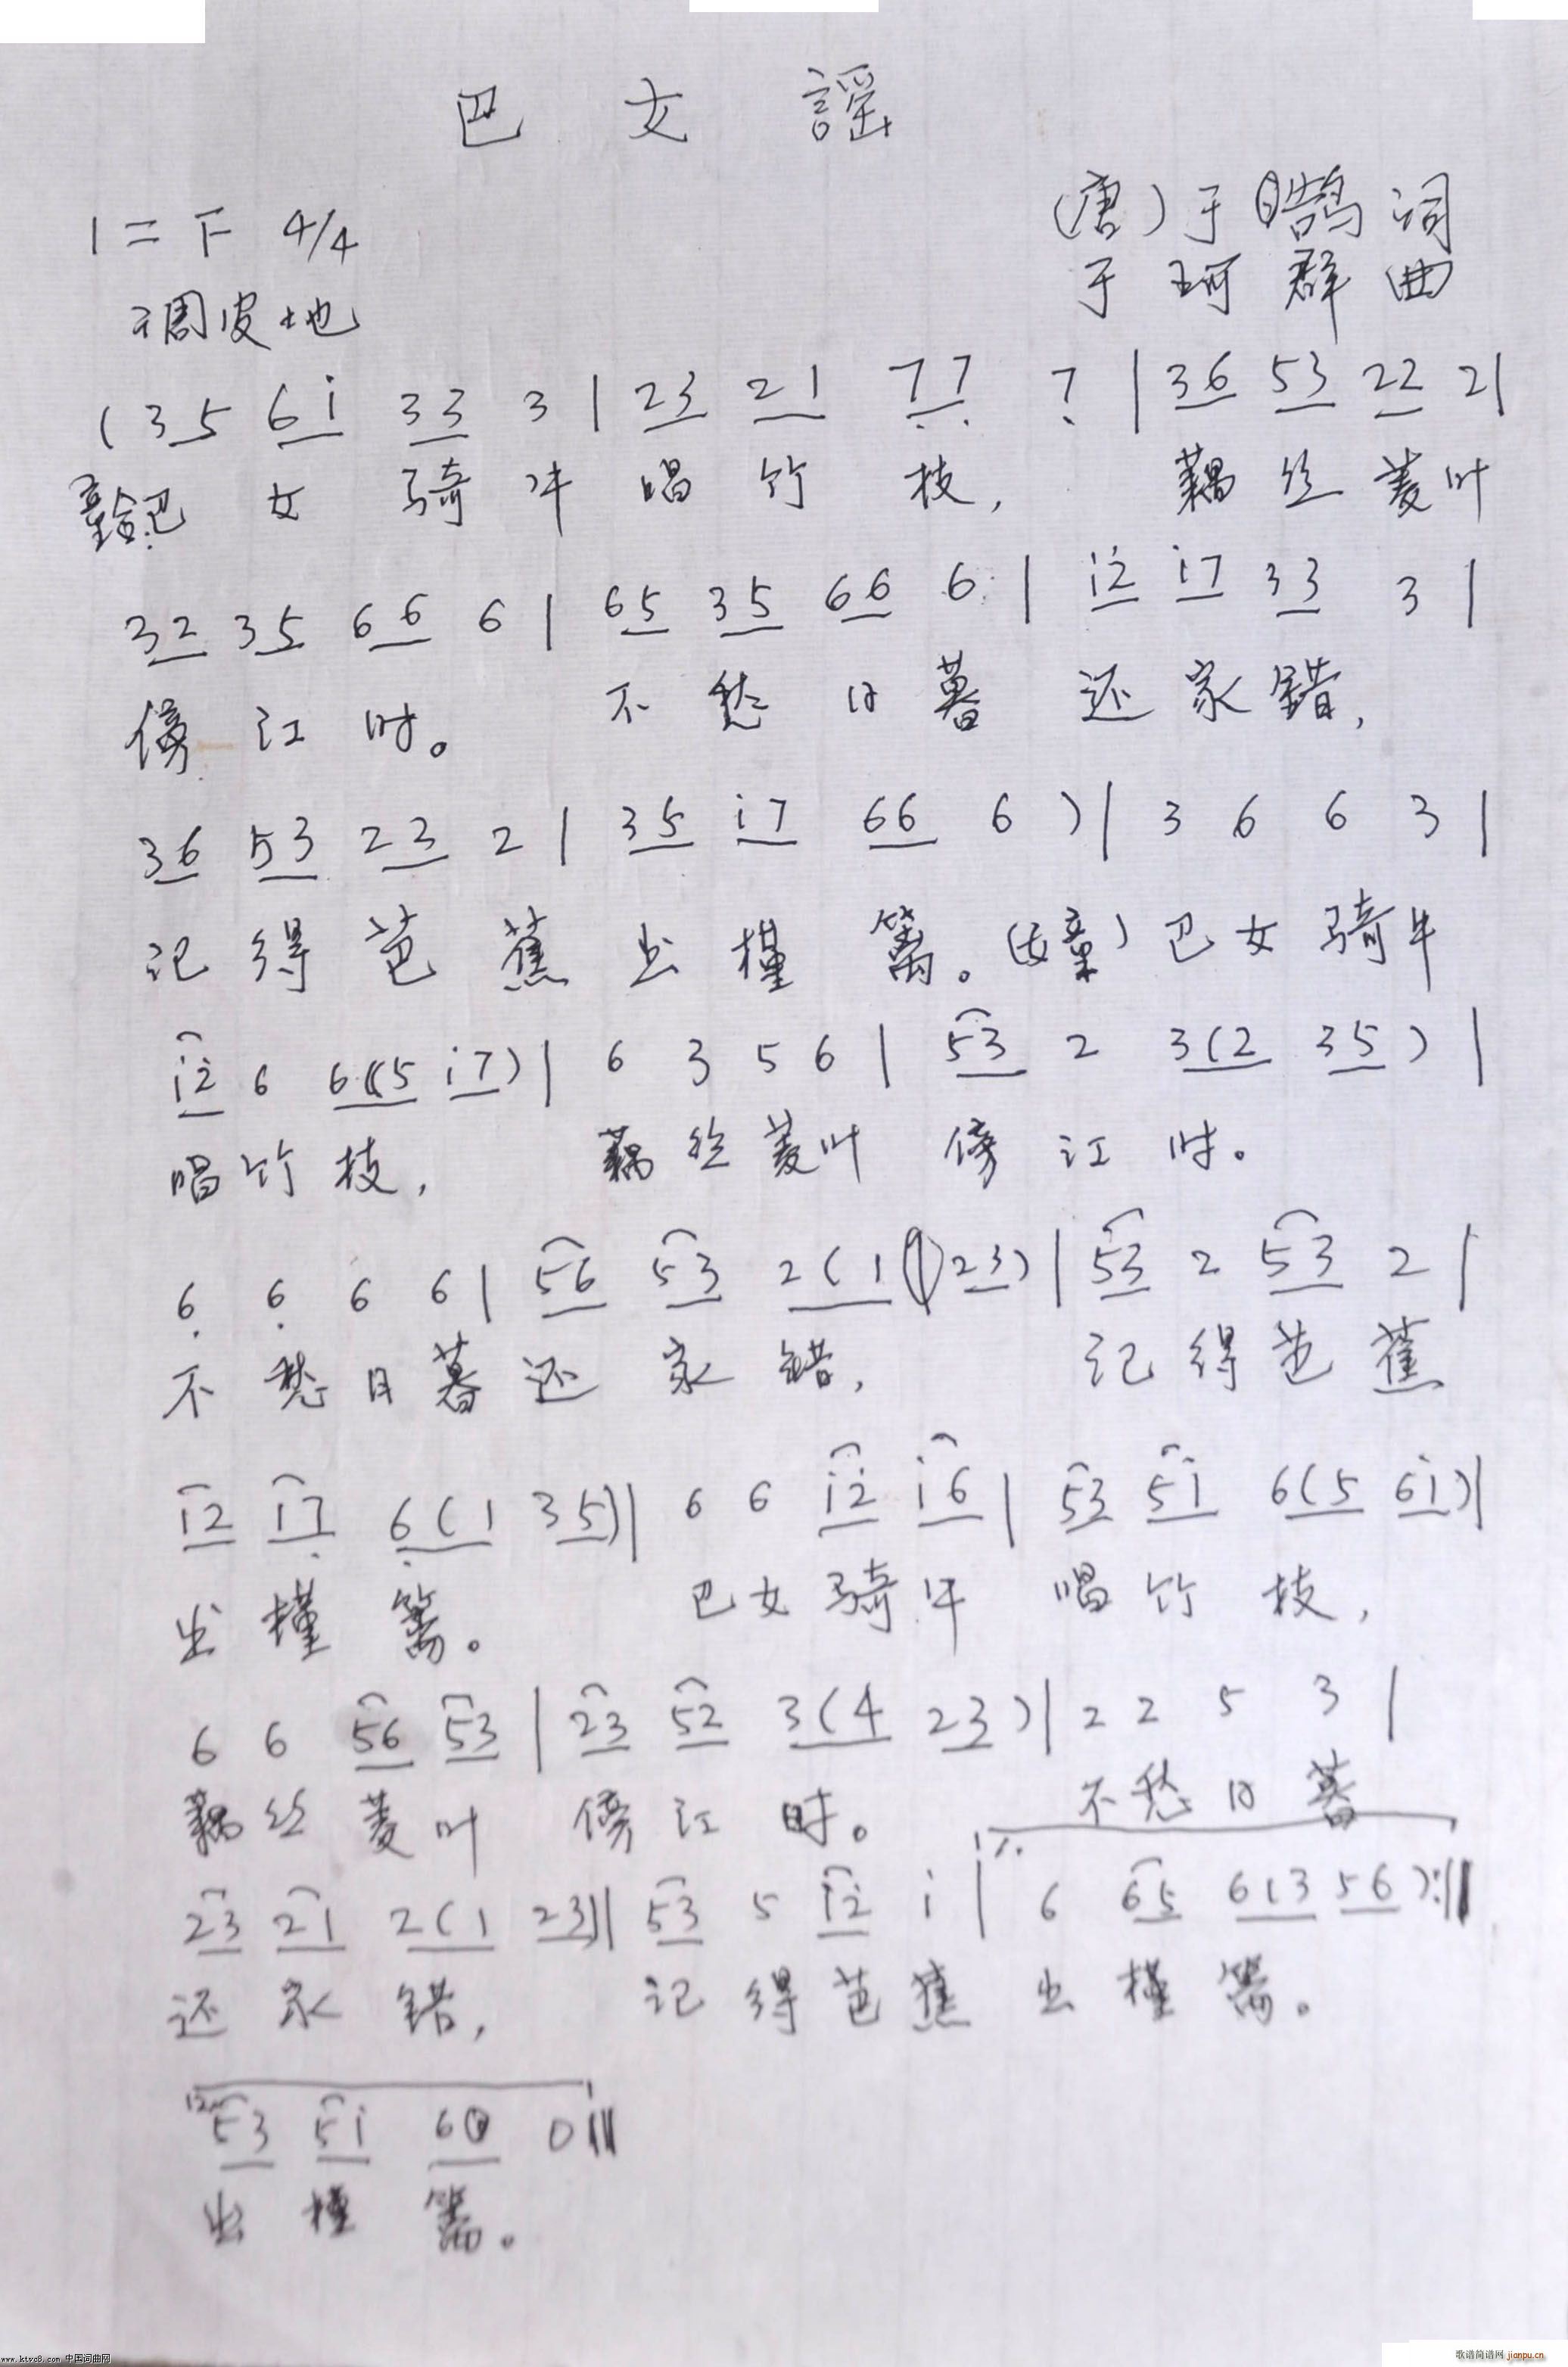 巴女謡
1=F 4/4
(唐)于鹄词
于珂群曲
调皮地
(35 6i 33 3|23 21 77 7|36 53 22 2|
童念:巴女骑牛唱竹枝, 藕丝菱叶
32 35 66 6|65 35 66 6|i2 i7 33 3|
傍江时。 不愁日暮还家错,
36 53 23 2|35 i7 66 6)|3 6 6 3|
记得芭蕉出槿篱。(女童)巴女骑牛
i2 6 6(5 i7)|6 3 5 6|53 2 3(2 35)|
唱竹枝, 藕丝菱叶傍江时。
6 6 6 6|56 53 2(1 23)|53 2 53 2|
不愁日暮还家错, 记得芭蕉
12 17 6(1 35)|6 6 i2 i6|53 5i 6(5 6i)|
出槿篱。 巴女骑牛唱竹枝,
6 6 56 53|23 52 3(4 23)|2 2 5 3|
藕丝菱叶傍江时。 不愁日暮
1.
23 21 2(1 23)|53 5 i2 i|6 65 6(3 56):||
还家错, 记得芭蕉出槿篱。
2.
53 5i 60 0||
出槿篱。
www.ktvc8.com 中国词曲网
歌谱简谱网 jianpu.cn